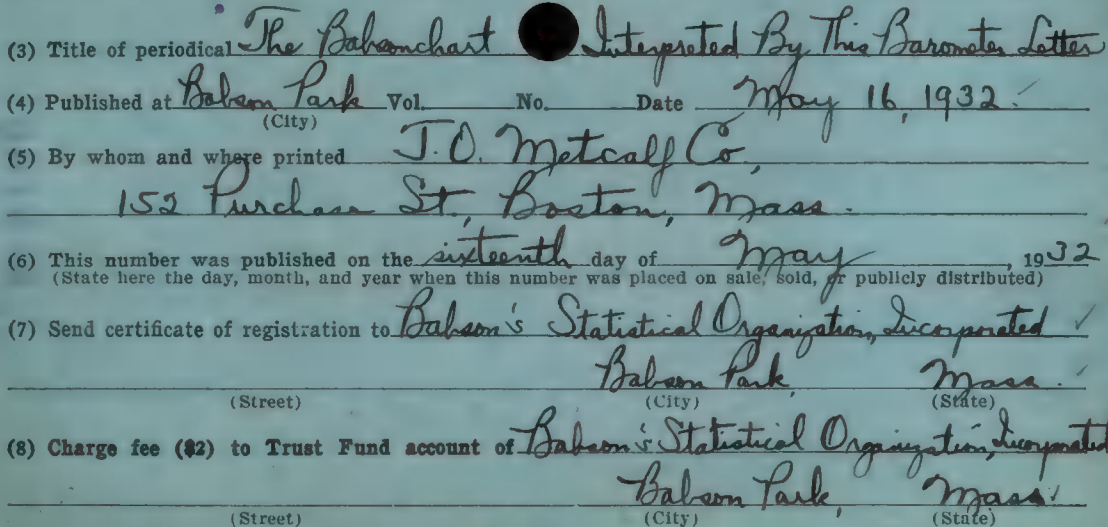 (3) Title of periodical The Babsonchart Interpreted By This Barometer Letter
(4) Published at Babson Park Vol. No. Date May 16, 1932
(City)
(5) By whom and where printed J.O. Metcalf Co,
152 Purchase St., Boston, Mass.
(6) This number was published on the sixteenth day of May, 1932
(State here the day, month, and year when this number was placed on sale, sold, or publicly distributed)
(7) Send certificate of registration to Babson's Statistical Organization, Incorporated ✓
Babson Park, Mass. ✓
(Street) (City) (State)
(8) Charge fee ($2) to Trust Fund account of Babson's Statistical Organization, Incorporated
Babson Park, Mass.
(Street) (City) (State)